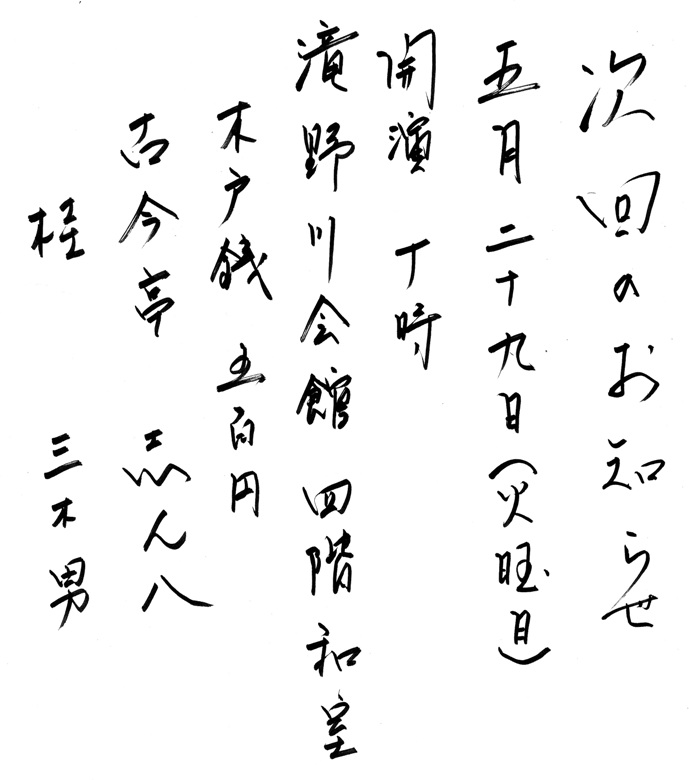 次回のお知らせ
五月二十九日(火曜日)
開演 十時
滝野川会館 四階和室
木戸銭 五百円
古今亭 志ん八
桂 三木男